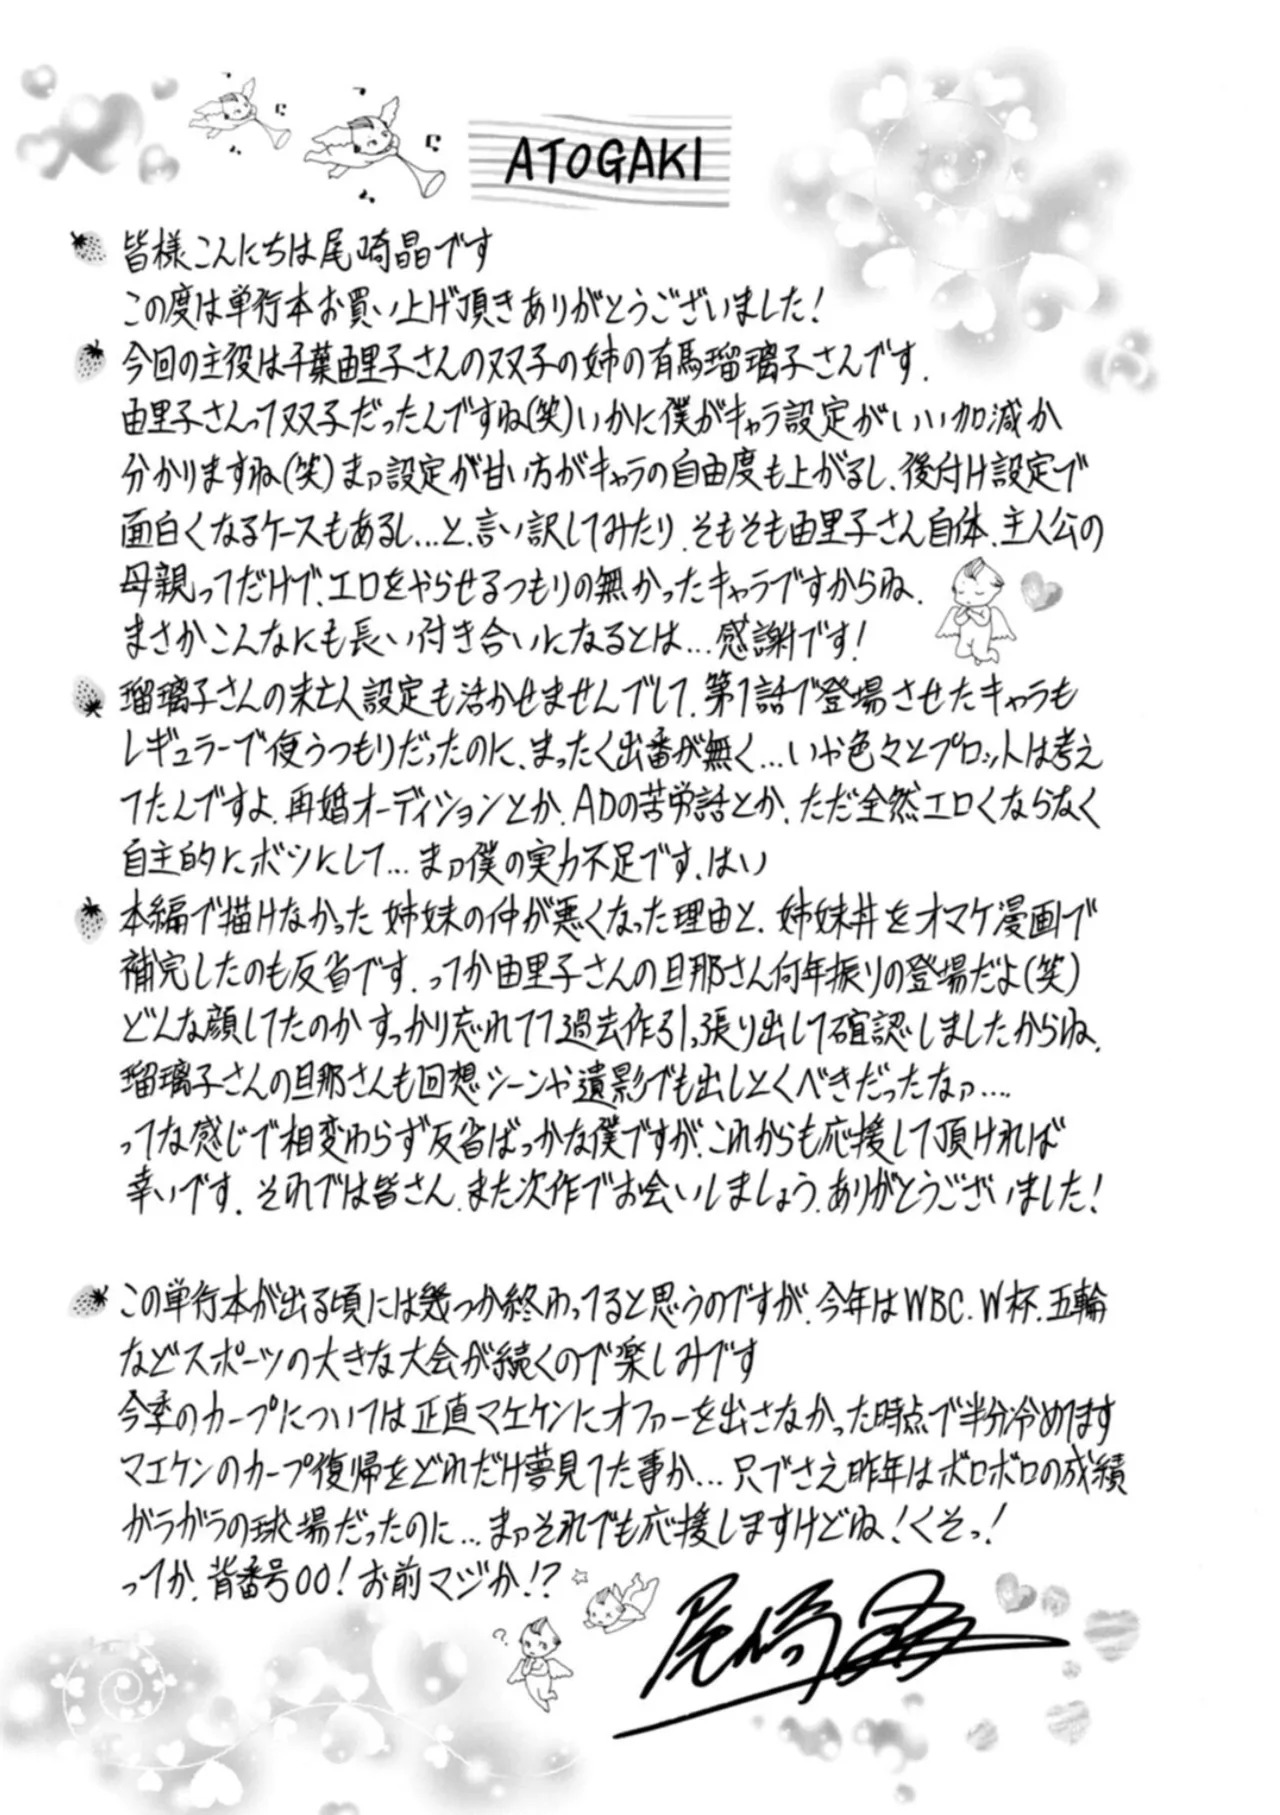 ATOGAKI
皆様こんにちは尾崎晶です
この度は単行本お買い上げ頂きありがとうございました!
今回の主役は千葉由里子さんの双子の姉の有馬瑠璃子さんです.
由里子さんって双子だったんですね(笑)いかに僕がキャラ設定がいい加減か
分かりますね(笑)まァ設定が甘い方がキャラの自由度も上がるし、後付け設定で
面白くなるケースもあるし…と、言い訳してみたり.そもそも由里子さん自体、主人公の
母親ってだけで、エロをやらせるつもりの無かったキャラですからね、
まさかこんなにも長い付き合いになるとは…感謝です!
瑠璃子さんの未亡人設定も活かせませんでして、第1話で登場させたキャラも
レギュラーで使うつもりだったのに、まったく出番が無く…いや色々とプロットは考え
てたんですよ、再婚オーディションとか、ADの苦労話とか、ただ全然エロくならなく
自主的にボツにして…まァ僕の実力不足です、はい
本編で描けなかった姉妹の仲が悪くなった理由と、姉妹丼をオマケ漫画で
補完したのも反省です.ってか由里子さんの旦那さん何年振りの登場だよ(笑)
どんな顔してたのかすっかり忘れてて過去作引っ張り出して確認しましたからね、
瑠璃子さんの旦那さんも回想シーンや遺影でも出しとくべきだったなァ….
ってな感じで相変わらず反省ばっかな僕ですが、これからも応援して頂ければ
幸いです.それでは皆さん、また次作でお会いしましょう.ありがとうございました!
この単行本が出る頃には幾つか終わってると思うのですが、今年はWBC、W杯、五輪
などスポーツの大きな大会が続くので楽しみです
今季のカープについては正直マエケンにオファーを出さなかった時点で半分冷めてます
マエケンのカープ復帰をどれだけ夢見てた事か…只でさえ昨年はボロボロの成績
ガラガラの球場だったのに…まァそれでも応援しますけどね!くそっ!
ってか、背番号00!お前マジか!?
?
尾崎晶